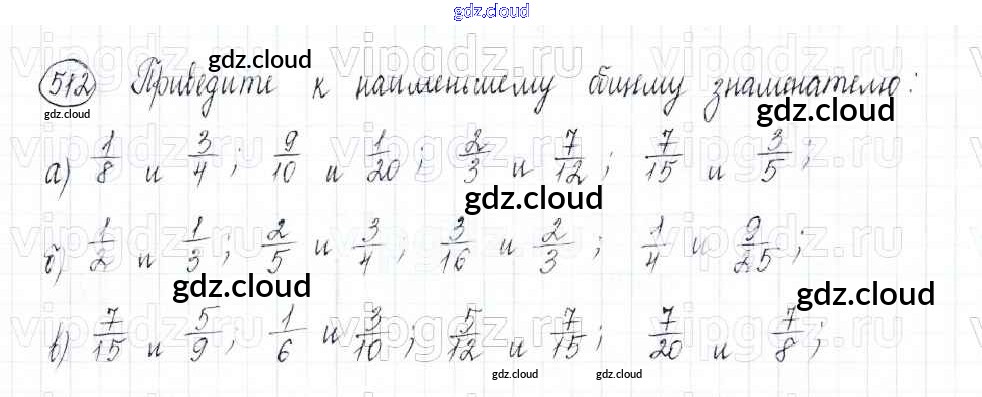 gdz.cloud
512 Приведите к наименьшему общему знаменателю:
gdz.cloud gdz.cloud gdz.cloud
vipgdz.ru vipgdz.ru vipgdz.ru
а) 1/8 и 3/4; 9/10 и 1/20; 2/3 и 7/12; 7/15 и 3/5;
gdz.cloud
б) 1/2 и 1/3; 2/5 и 3/4; 3/16 и 2/3; 1/4 и 9/25;
gdz.cloud gdz.cloud
в) 7/15 и 5/9; 1/6 и 3/10; 5/12 и 7/15; 7/20 и 7/8;
gdz.cloud gdz.cloud